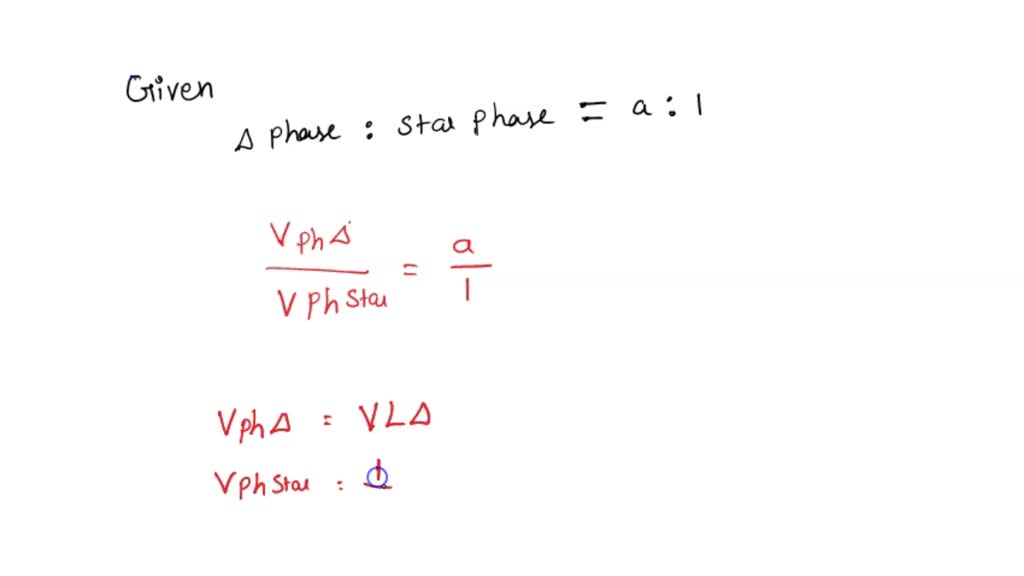 Given
Δ phase : star phase = a : 1
VphΔ / Vph star = a / 1
VphΔ = VLΔ
Vph star = 1